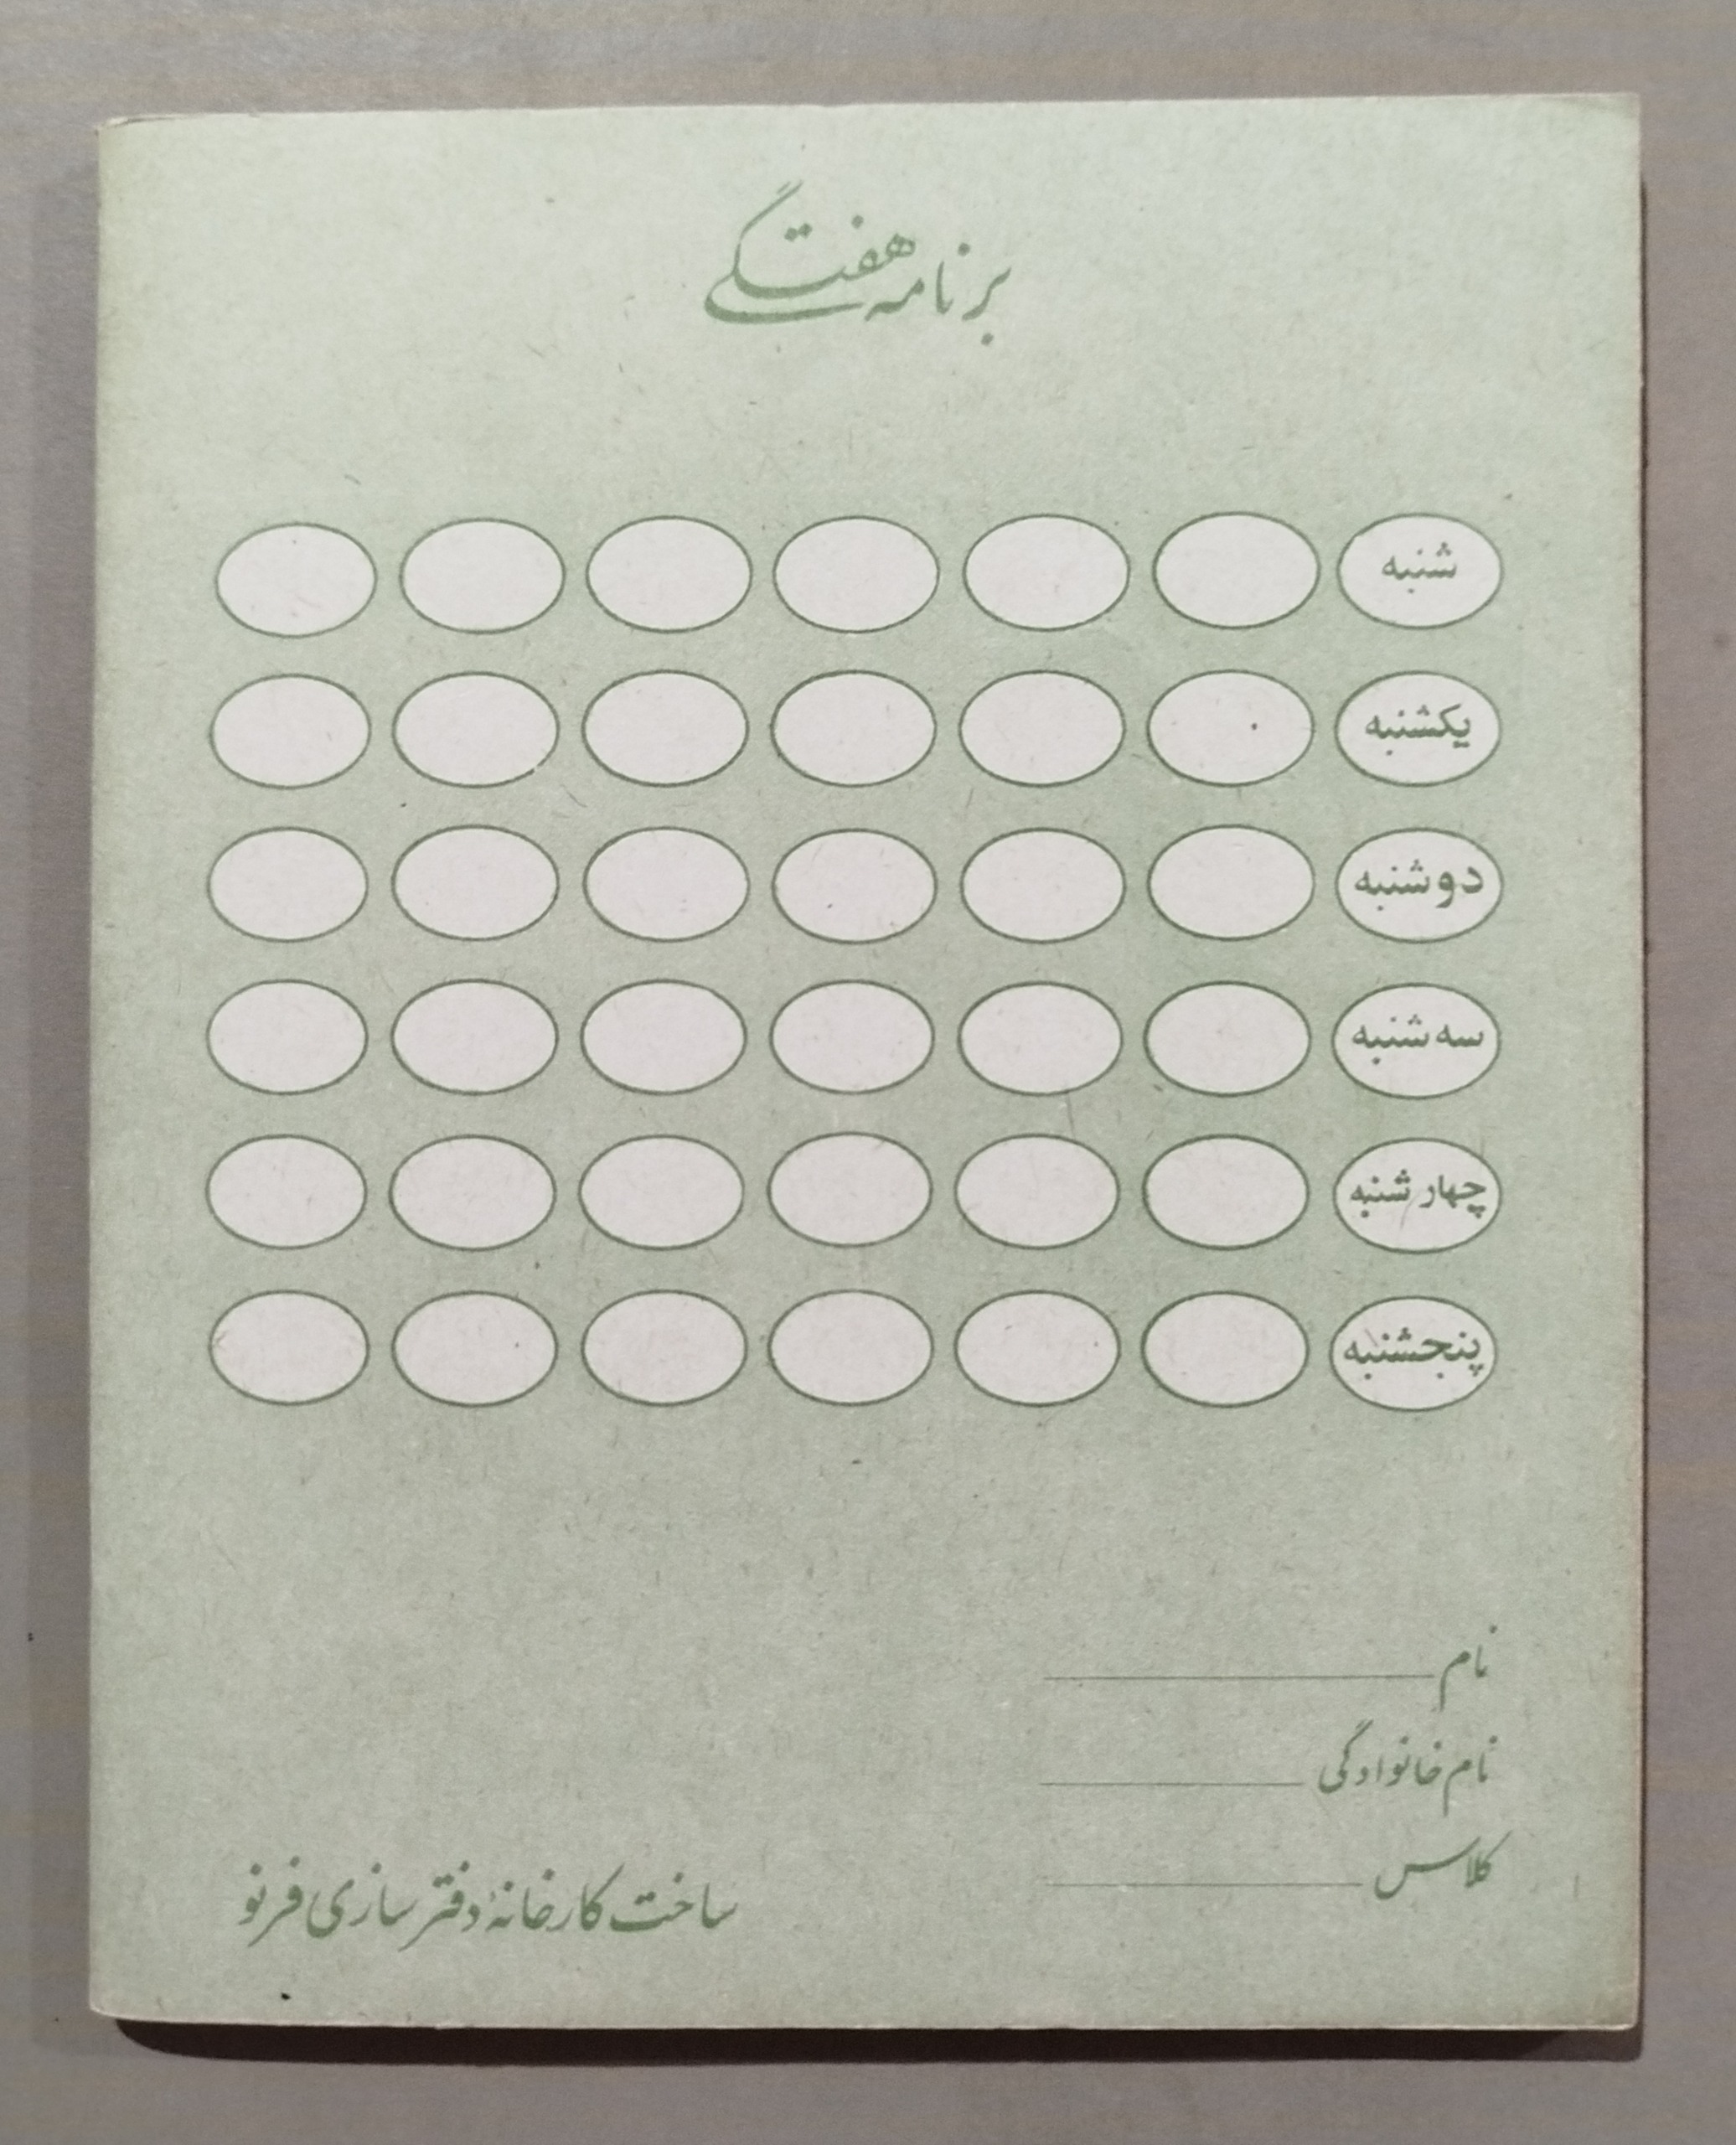 برنامه هفتگی
شنبه
یکشنبه
دوشنبه
سه شنبه
چهار شنبه
پنجشنبه
نام
نام خانوادگی
کلاس
ساخت کارخانهٔ دفتر سازی فرنو